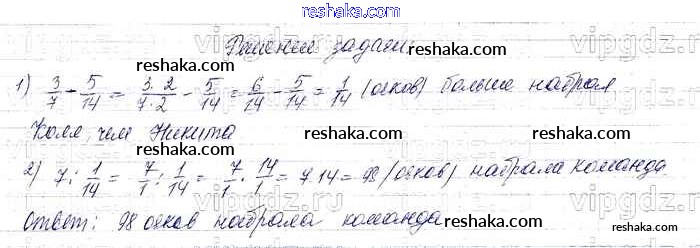 reshaka.com
Решение задачи. reshaka.com
1) 3/7 - 5/14 = 3·2/7·2 - 5/14 = 6/14 - 5/14 = 1/14 (очков) больше набрал
Коля, чем Никита reshaka.com
reshaka.com
2) 7 : 1/14 = 7/1 : 1/14 = 7/1 · 14/1 = 7·14 = 98 (очков) набрала команда
reshaka.com
Ответ: 98 очков набрала команда
reshaka.com